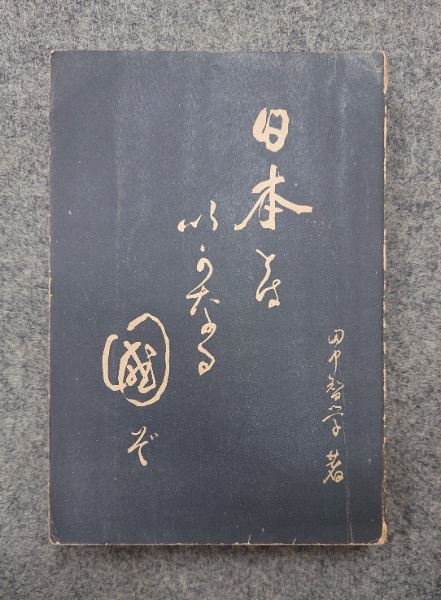 日本とは
いかなる
國ぞ
田中智学著